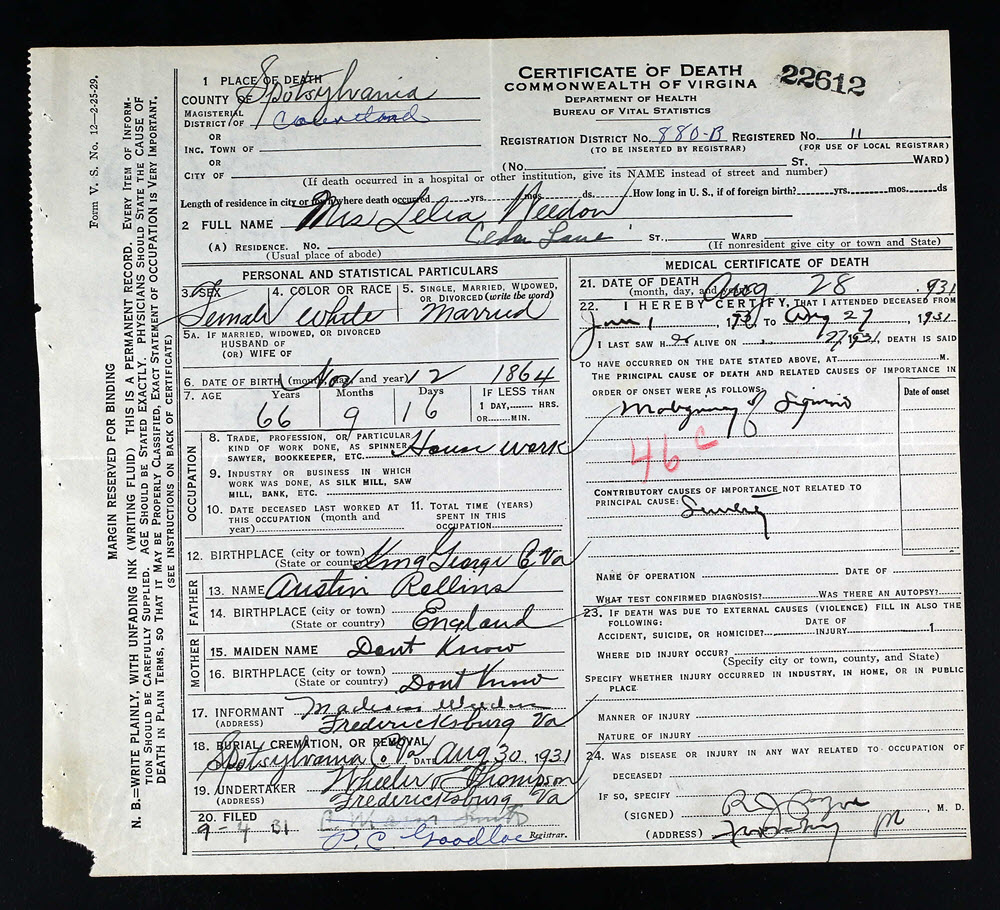 Form V. S. No. 12—2-25-29.
MARGIN RESERVED FOR BINDING
N. B.—WRITE PLAINLY, WITH UNFADING INK (WRITING FLUID) THIS IS A PERMANENT RECORD. EVERY ITEM OF INFORM-
TION SHOULD BE CAREFULLY SUPPLIED. AGE SHOULD BE STATED EXACTLY. PHYSICIANS SHOULD STATE THE CAUSE OF
DEATH IN PLAIN TERMS, SO THAT IT MAY BE PROPERLY CLASSIFIED. EXACT STATEMENT OF OCCUPATION IS VERY IMPORTANT.
(SEE INSTRUCTIONS ON BACK OF CERTIFICATE)
CERTIFICATE OF DEATH
COMMONWEALTH OF VIRGINA
DEPARTMENT OF HEALTH
BUREAU OF VITAL STATISTICS
22612
1 PLACE OF DEATH
COUNTY OF Spotsylvania
MAGISTERIAL
DISTRICT OF Courtland
OR
INC. TOWN OF
OR
CITY OF
REGISTRATION DISTRICT NO. 880-B REGISTERED NO. 11
(TO BE INSERTED BY REGISTRAR) (FOR USE OF LOCAL REGISTRAR)
(No. ST. WARD)
(If death occurred in a hospital or other institution, give its NAME instead of street and number)
Length of residence in city or town where death occurred yrs. mos. ds. How long in U. S., if of foreign birth? yrs. mos. ds
2 FULL NAME Mrs Lelia Weedon
(A) RESIDENCE. No. Cedar Lane ST., WARD
(Usual place of abode) (If nonresident give city or town and State)
PERSONAL AND STATISTICAL PARTICULARS
3. SEX 4. COLOR OR RACE 5. SINGLE, MARRIED, WIDOWED,
OR DIVORCED (write the word)
Female White Married
5A. IF MARRIED, WIDOWED, OR DIVORCED
HUSBAND OF
(OR) WIFE OF
6. DATE OF BIRTH (month, day, and year) Nov 12 1864
7. AGE Years Months Days IF LESS THAN
1 DAY, HRS.
OR MIN.
66 9 16
OCCUPATION
8. TRADE, PROFESSION, OR PARTICULAR
KIND OF WORK DONE, AS SPINNER,
SAWYER, BOOKKEEPER, ETC. House work
9. INDUSTRY OR BUSINESS IN WHICH
WORK WAS DONE, AS SILK MILL, SAW
MILL, BANK, ETC.
10. DATE DECEASED LAST WORKED AT
THIS OCCUPATION (month and
year)
11. TOTAL TIME (YEARS)
SPENT IN THIS
OCCUPATION
12. BIRTHPLACE (city or town)
(State or country) King George C Va
FATHER
13. NAME Austin Rollins
14. BIRTHPLACE (city or town)
(State or country) England
MOTHER
15. MAIDEN NAME Dont Know
16. BIRTHPLACE (city or town)
(State or country) Dont Know
17. INFORMANT Madison Weedon
(ADDRESS) Fredericksburg Va
18. BURIAL, CREMATION, OR REMOVAL
Spotsylvania Co. Va DATE Aug 30, 1931
19. UNDERTAKER Wheeler & Thompson
(ADDRESS) Fredericksburg Va
20. FILED
9-4 31
P. C. Goodloe Registrar.
MEDICAL CERTIFICATE OF DEATH
21. DATE OF DEATH
(month, day, and year) Aug 28 , 931
22. I HEREBY CERTIFY, THAT I ATTENDED DECEASED FROM
Jan 1, 1931 TO Aug 27, 1931
I LAST SAW H er ALIVE ON 27 1931, DEATH IS SAID
TO HAVE OCCURRED ON THE DATE STATED ABOVE, AT M.
THE PRINCIPAL CAUSE OF DEATH AND RELATED CAUSES OF IMPORTANCE IN
ORDER OF ONSET WERE AS FOLLOWS:
Date of onset
of
46 C
CONTRIBUTORY CAUSES OF IMPORTANCE NOT RELATED TO
PRINCIPAL CAUSE:
NAME OF OPERATION DATE OF
WHAT TEST CONFIRMED DIAGNOSIS? WAS THERE AN AUTOPSY?
23. IF DEATH WAS DUE TO EXTERNAL CAUSES (VIOLENCE) FILL IN ALSO THE
FOLLOWING:
ACCIDENT, SUICIDE, OR HOMICIDE? DATE OF
INJURY 1
WHERE DID INJURY OCCUR?
(Specify city or town, county, and State)
SPECIFY WHETHER INJURY OCCURRED IN INDUSTRY, IN HOME, OR IN PUBLIC
PLACE
MANNER OF INJURY
NATURE OF INJURY
24. WAS DISEASE OR INJURY IN ANY WAY RELATED TO OCCUPATION OF
DECEASED?
IF SO, SPECIFY
(SIGNED) R J Payne M. D.
(ADDRESS)